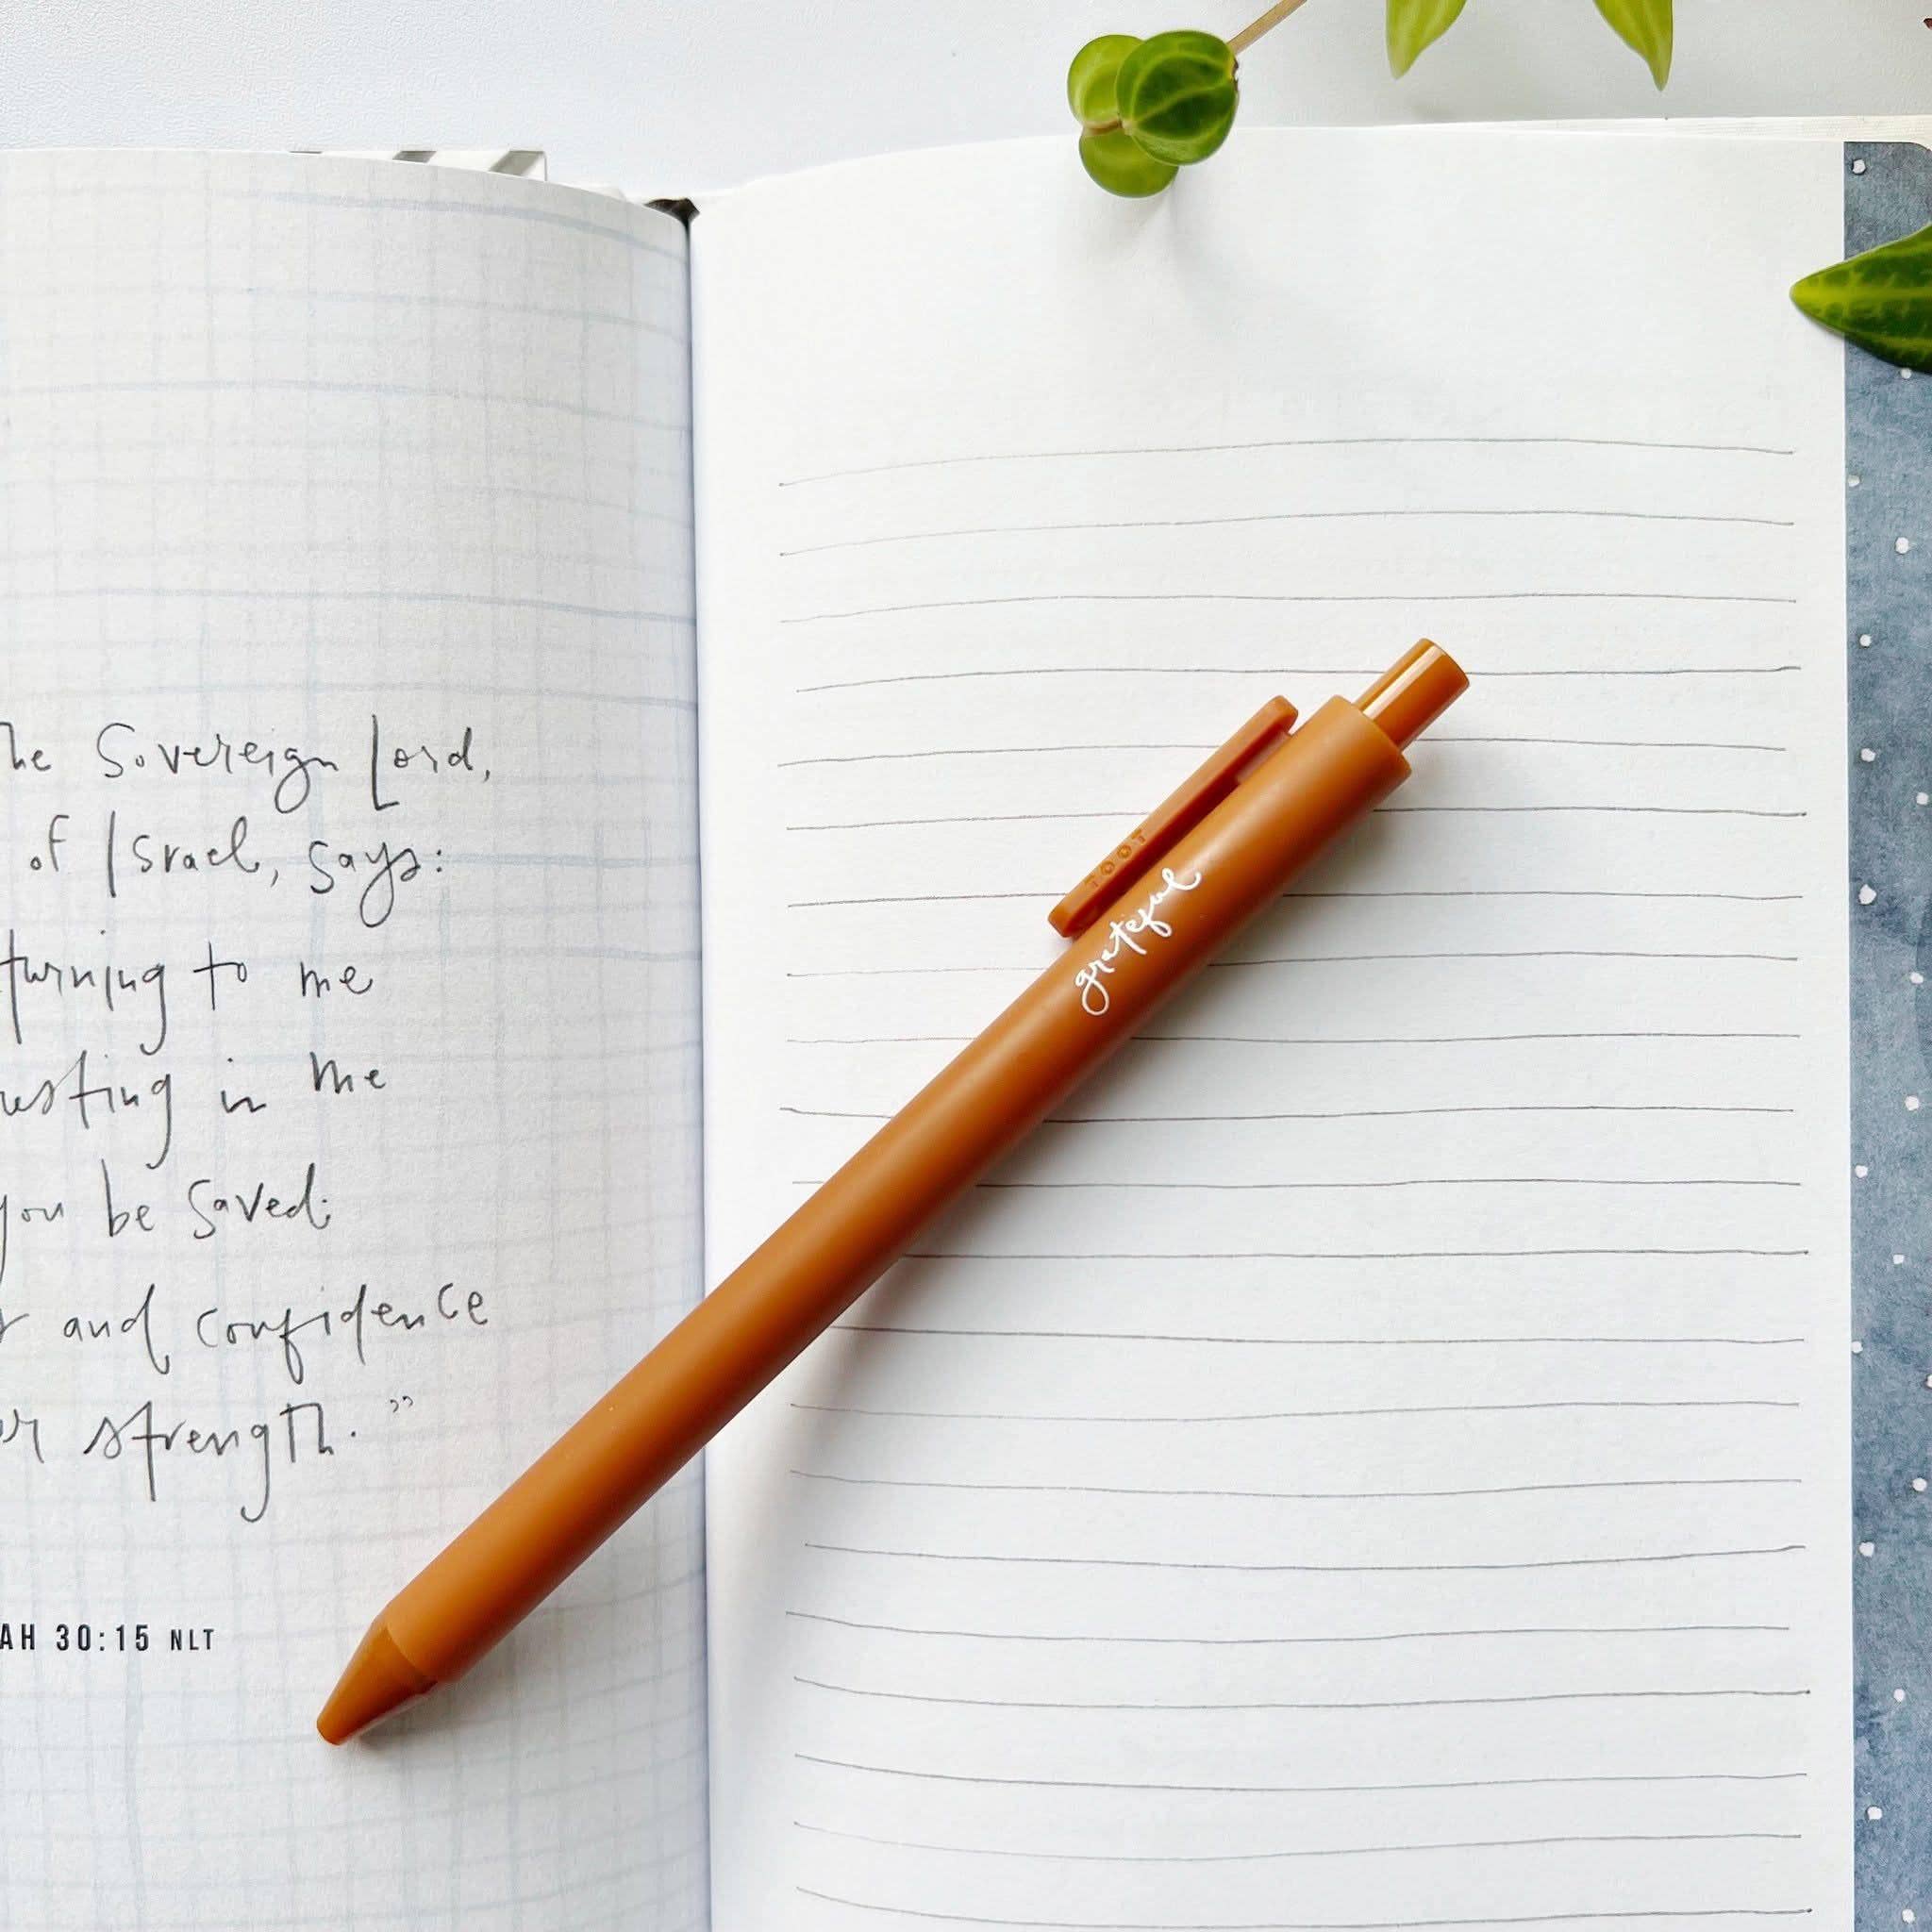 he Sovereign Lord,
of Israel, says:
turning to me
resting in me
you be saved.
and confidence
or strength."
AH 30:15 NLT
TOOT
grateful